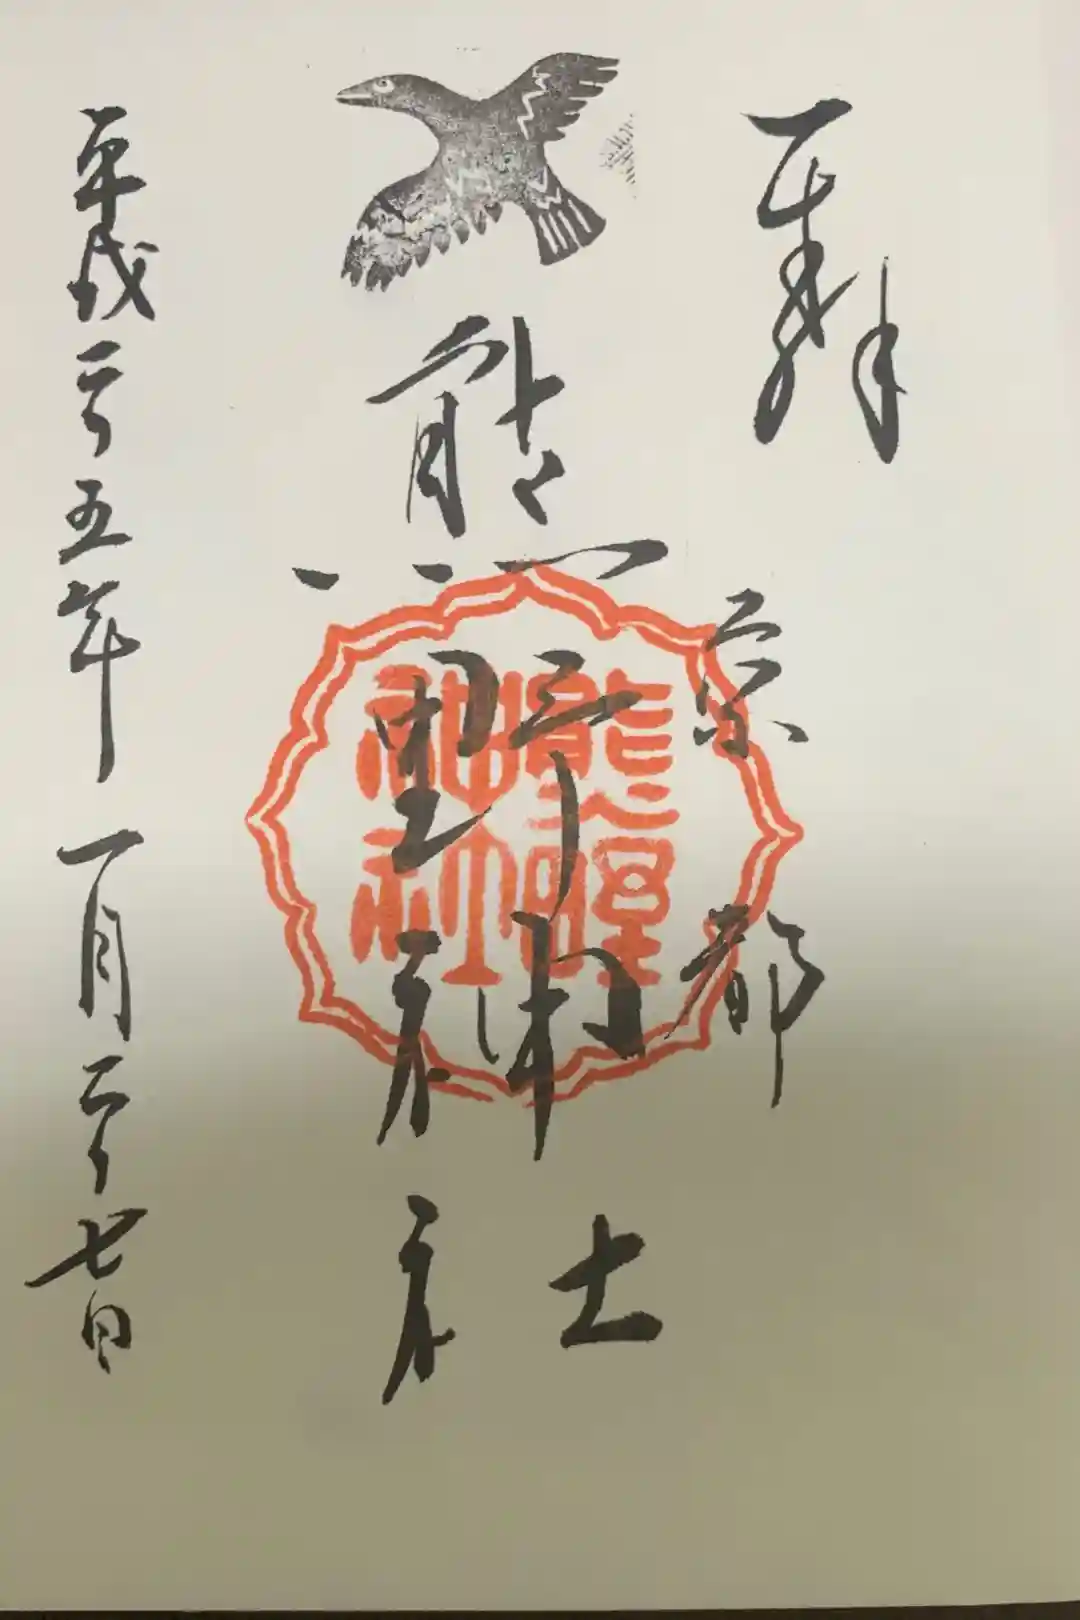 奉拝
京都
熊野神社
熊野
神社
平成二十五年一月二十七日